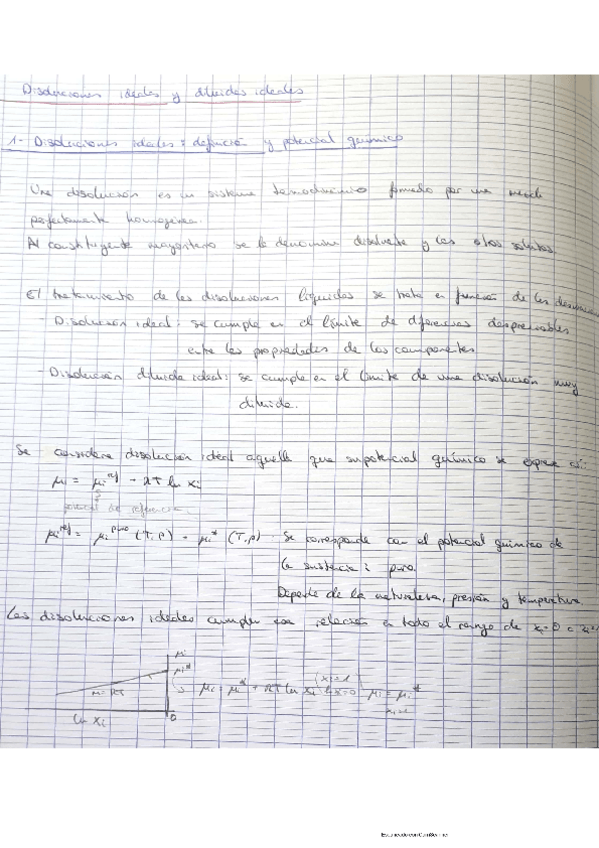 Disoluciones ideales y diluidas ideales
1- Disoluciones ideales: definición y potencial químico
Una disolución es un sistema termodinámico formado por una mezcla
perfectamente homogénea.
Al constituyente mayoritario se le denomina disolvente y los otros solutos.
El tratamiento de las disoluciones líquidas se trata en función de las
- Disolución ideal: se cumple en el límite de diferencias despreciables
entre las propiedades de los componentes
- Disolución diluida ideal: se cumple en el límite de una disolución muy
diluida.
Se considera disolución ideal aquella que su potencial químico se expresa así:
μi = μi^ref + RT ln xi
potencial de referencia
μi^ref = μi^puro (T,p) = μi* (T,p) Se corresponde con el potencial químico de
la sustancia i pura.
Depende de la naturaleza, presión y temperatura.
Las disoluciones ideales cumplen esa relación en todo el rango de xi=0 a
μi
μi*
m = RT
μi = μi* + RT ln xi
xi=1
ln x=0
μi = μi*
xi=1
ln xi
0
Escaneado con CamScanner